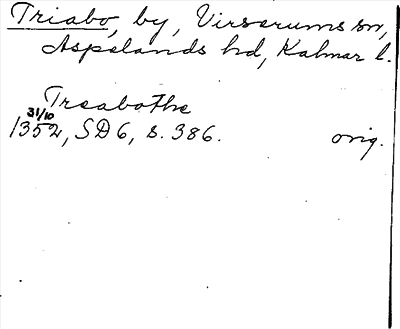 Triabo, by, Virserums sn,
Aspelands hd, Kalmar l.
Treabothe
31/10
1352, SD 6, s. 386. orig.